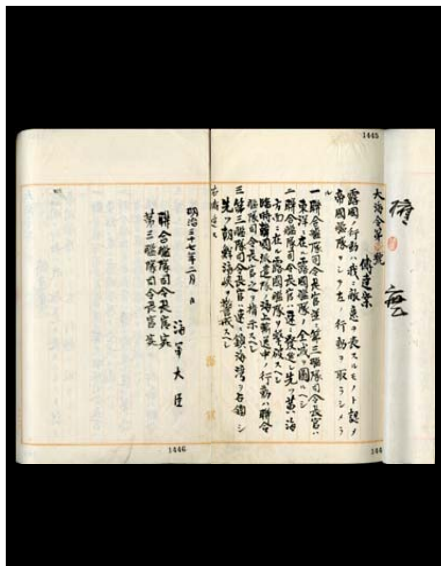 1445
大海令第一號
傳達案
露國ノ行動ハ我ニ敵意ヲ表スルモノト認メ
帝國艦隊ヲシテ左ノ行動ヲ取ラシメラ
ル
一聯合艦隊司令長官並ニ第三艦隊司令長官ハ
東洋ニ在ル露國艦隊ノ全滅ヲ圖ルヘシ
二聯合艦隊司令長官ハ速ニ發進シ先ツ黄海
方面ニ在ル露國艦隊ヲ撃破スヘシ
臨時韓國派遣隊ノ海上輸送中ノ行動ハ聯合
艦隊司令長官之ヲ指示スヘシ
三第三艦隊司令長官ハ速ニ鎮海湾ヲ占領シ
先ツ朝鮮海峡ヲ警戒スヘシ
右傳達ス
明治三十七年二月 日
海軍大臣
聯合艦隊司令長官宛
第三艦隊司令長官宛
1446